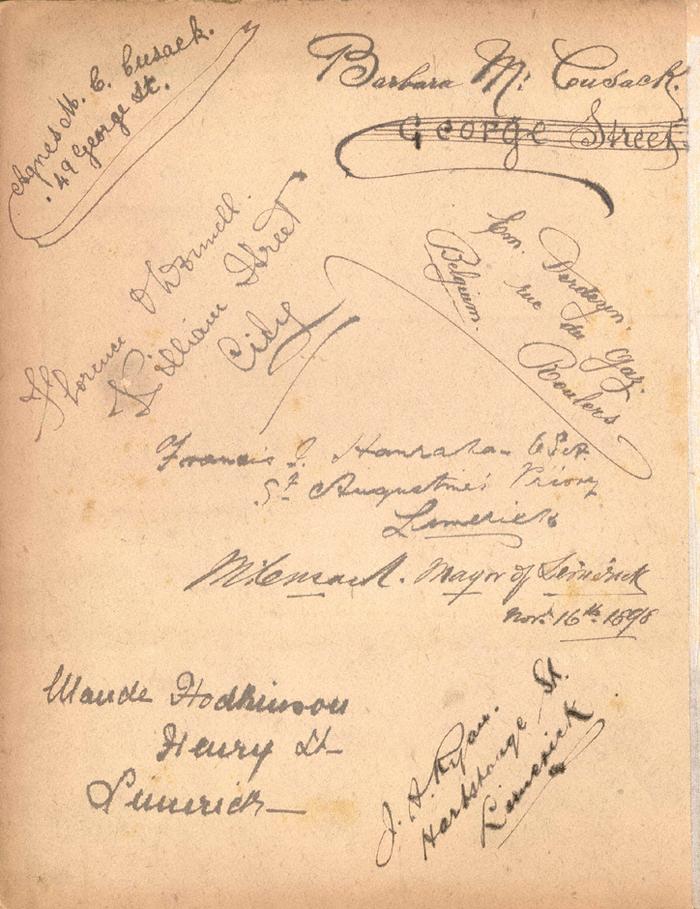 Agnes M. C. Cusack.
49 George St.
Barbara M. Cusack.
George Street
Florence O'Donnell.
William Street
City
Em. Derdeyn.
rue du Gaz.
Roulers
Belgium.
Francis J. Hanrahan
St Augustine's Priory
Limerick
M. Cusack. Mayor of Limerick
Nov. 16th 1898
Maude Hodkinson
Henry St
Limerick
J. A. Ryan.
Hartstonge St.
Limerick